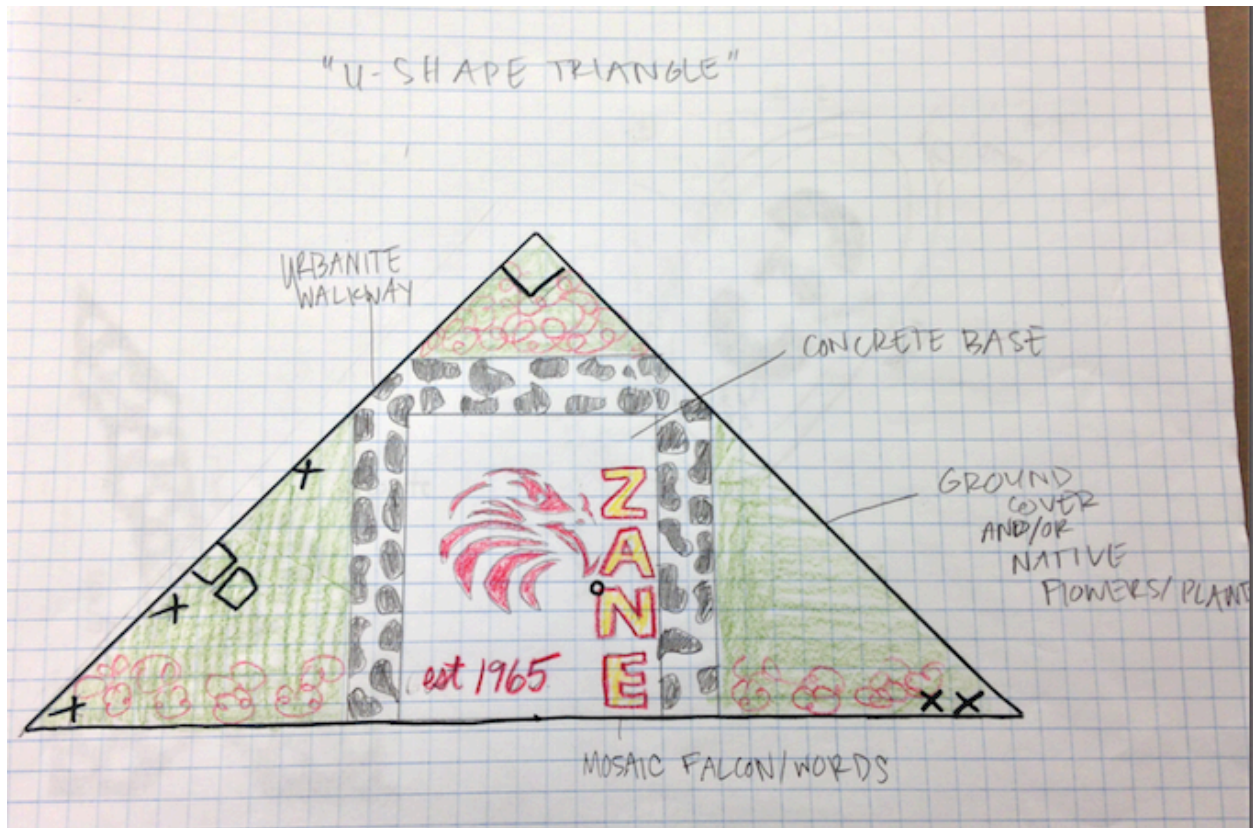 "U-SHAPE TRIANGLE"
URBANITE
WALKWAY
CONCRETE BASE
GROUND
COVER
AND/OR
NATIVE
FLOWERS/PLANT
ZANE
est 1965
MOSAIC FALCON/WORDS